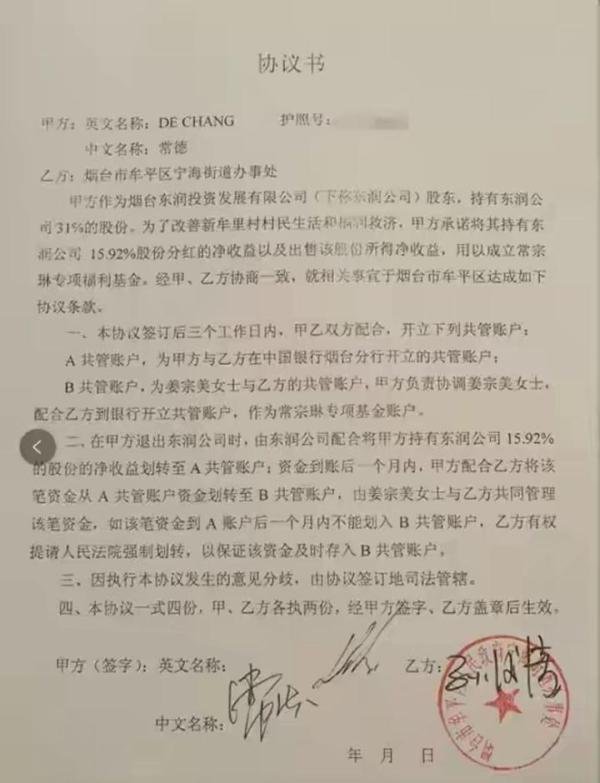 协议书
甲方：英文名称：DE CHANG 护照号：
中文名称：常德
乙方：烟台市牟平区宁海街道办事处
甲方作为烟台东润投资发展有限公司（下称东润公司）股东，持有东润公
司31%的股份。为了改善新牟里村村民生活和福利救济，甲方承诺将其持有东
润公司 15.92%股份分红的净收益以及出售该股份所得净收益，用以成立常宗
琳专项福利基金。经甲、乙方协商一致，就相关事宜于烟台市牟平区达成如下
协议条款。
一、本协议签订后三个工作日内，甲乙双方配合，开立下列共管账户：
A 共管账户，为甲方与乙方在中国银行烟台分行开立的共管账户；
B 共管账户，为姜宗美女士与乙方的共管账户，甲方负责协调姜宗美女士，
配合乙方到银行开立共管账户，作为常宗琳专项基金账户。
二、在甲方退出东润公司时，由东润公司配合将甲方持有东润公司 15.92%
的股份的净收益划转至 A 共管账户；资金到账后一个月内，甲方配合乙方将该
笔资金从 A 共管账户资金划转至 B 共管账户，由姜宗美女士与乙方共同管理
该笔资金，如该笔资金到 A 账户后一个月内不能划入 B 共管账户，乙方有权
提请人民法院强制划转，以保证该资金及时存入 B 共管账户。
三、因执行本协议发生的意见分歧，由协议签订地司法管辖。
四、本协议一式四份，甲、乙方各执两份，经甲方签字、乙方盖章后生效。
甲方（签字）：英文名称： 乙方：
中文名称：
年 月 日